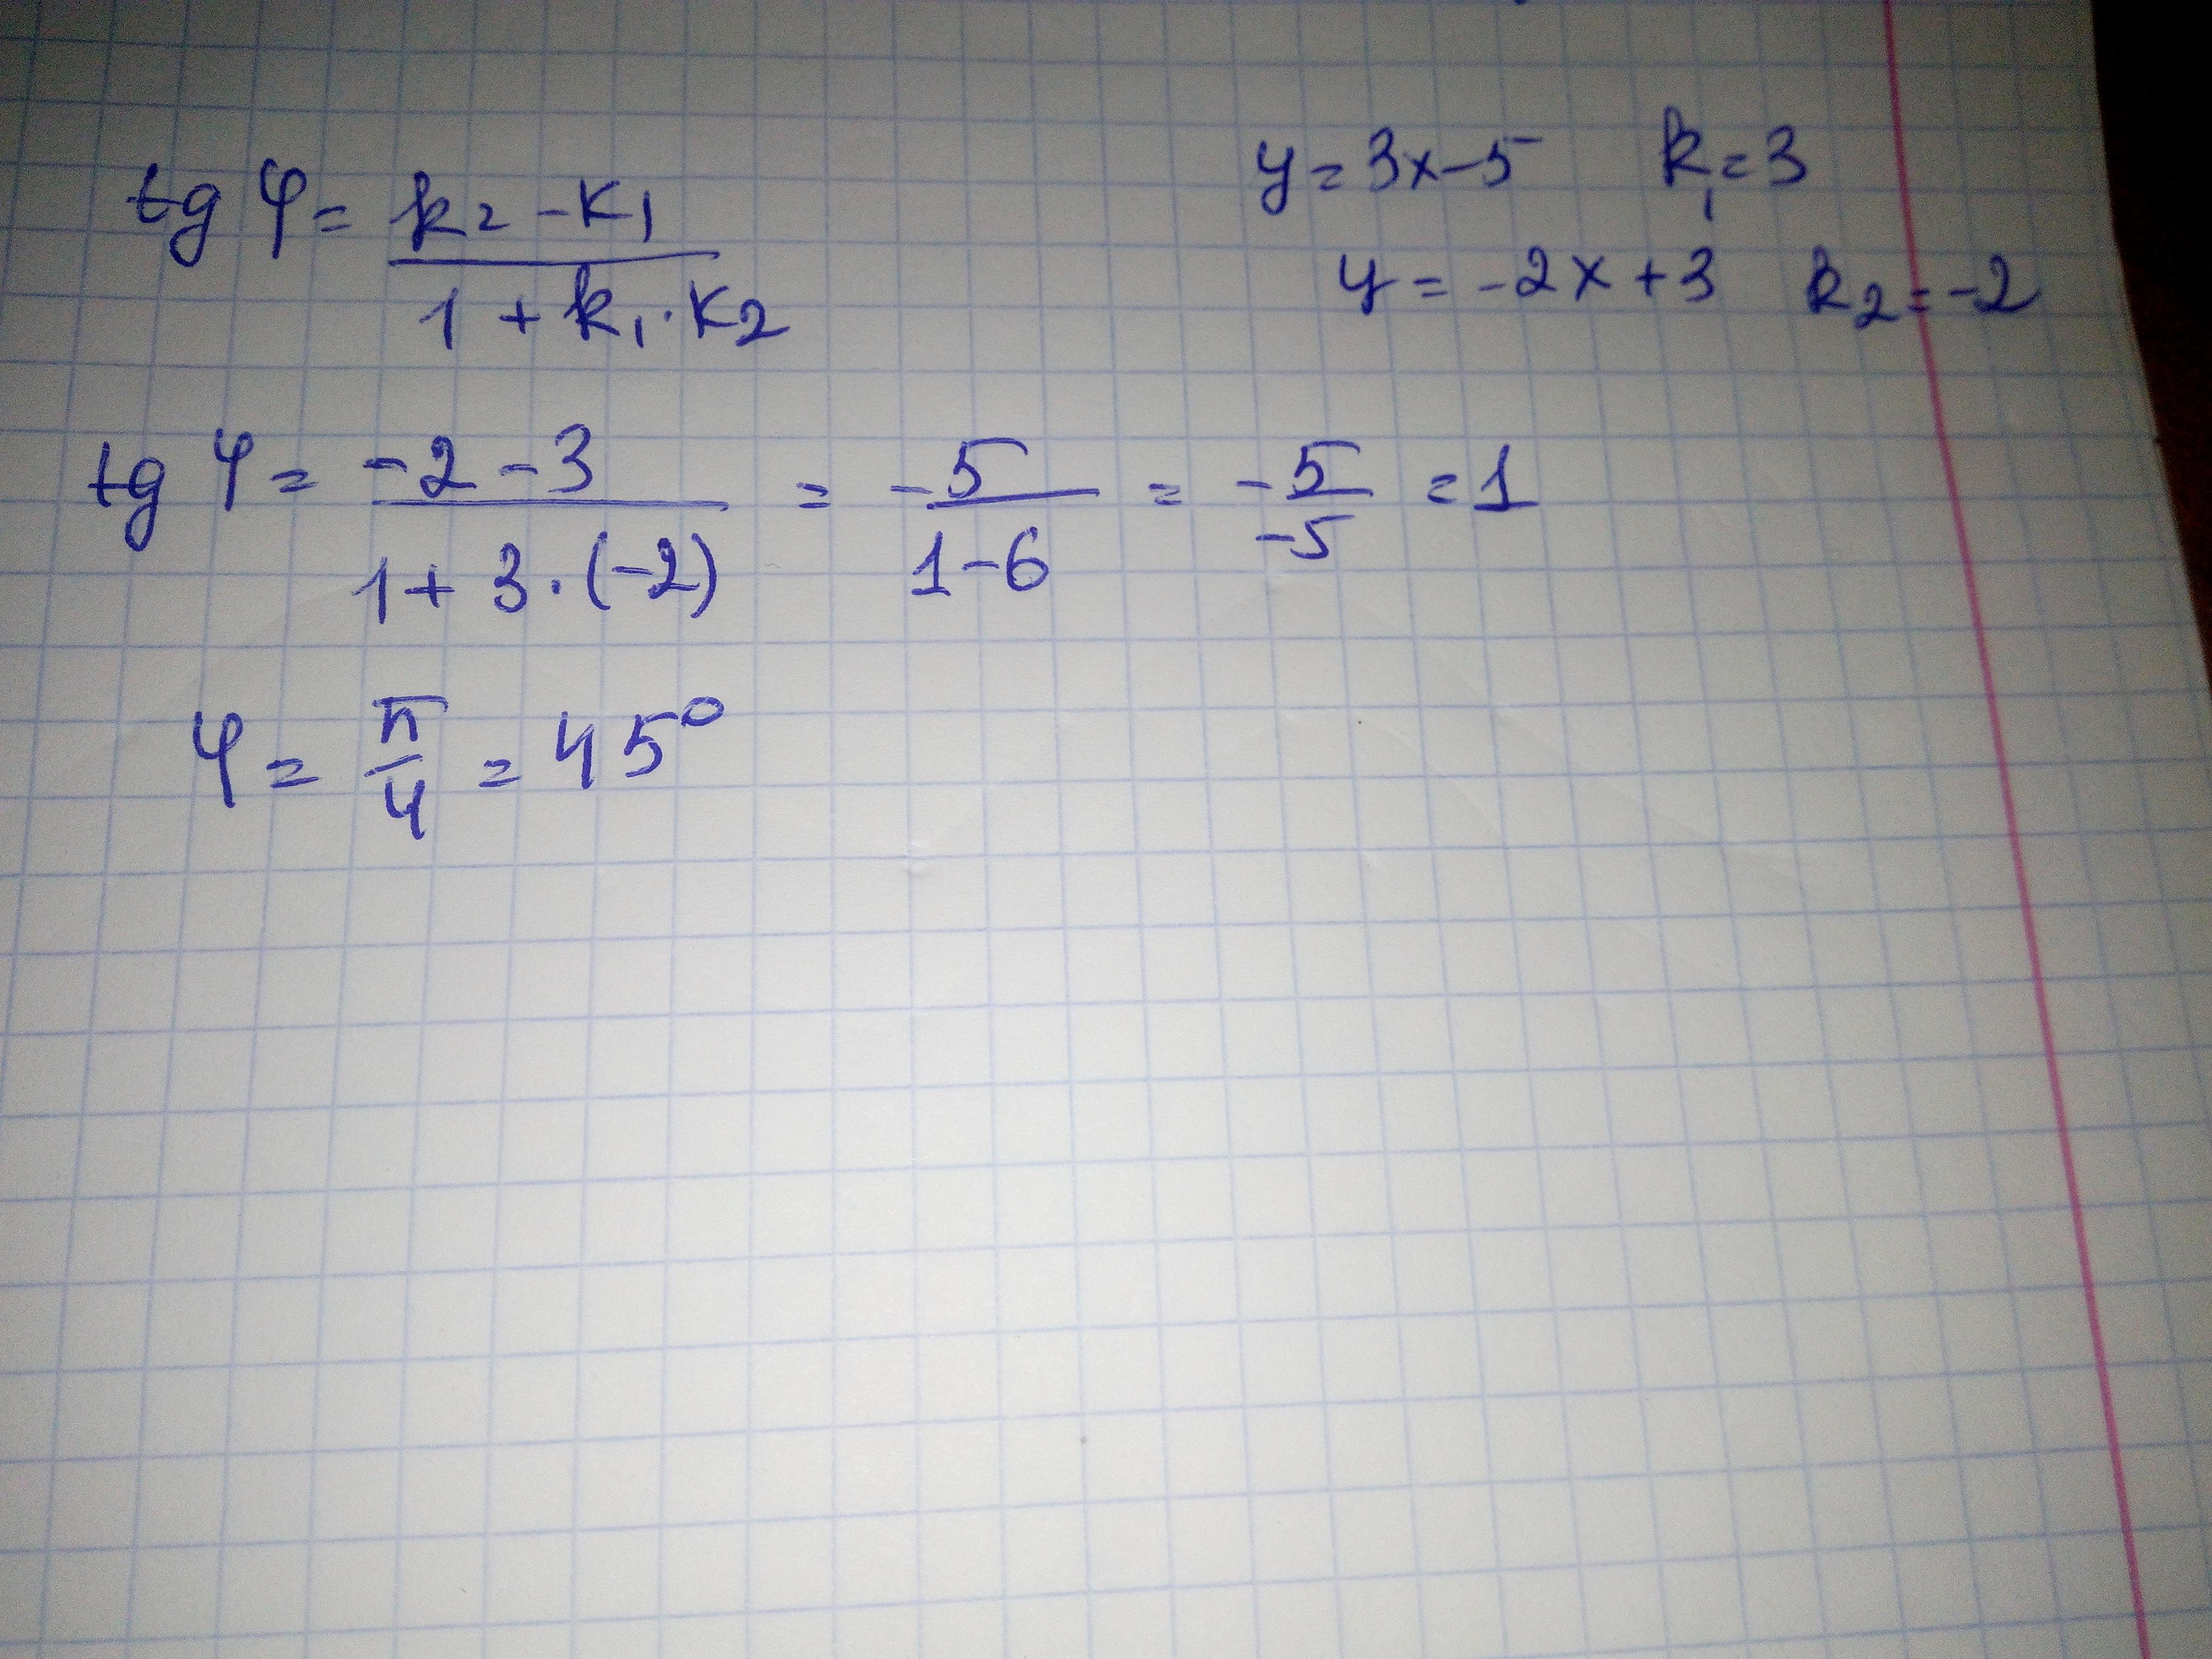 tg φ = (k2 - k1) / (1 + k1 · k2)
y = 3x - 5 k1 = 3
y = -2x + 3 k2 = -2
tg φ = (-2 - 3) / (1 + 3 · (-2)) = -5 / (1 - 6) = -5 / -5 = 1
φ = π/4 = 45°